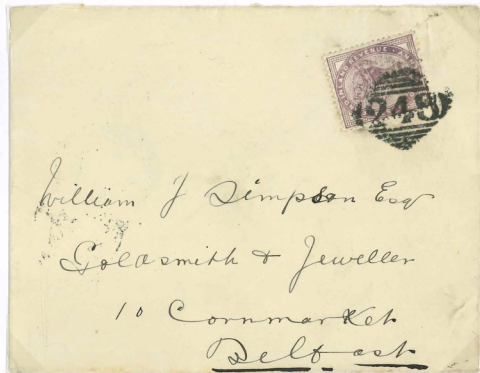 INLAND REVENUE
248
William J Simpson Esqr
Goldsmith & Jeweller
10 Cornmarket
Belfast